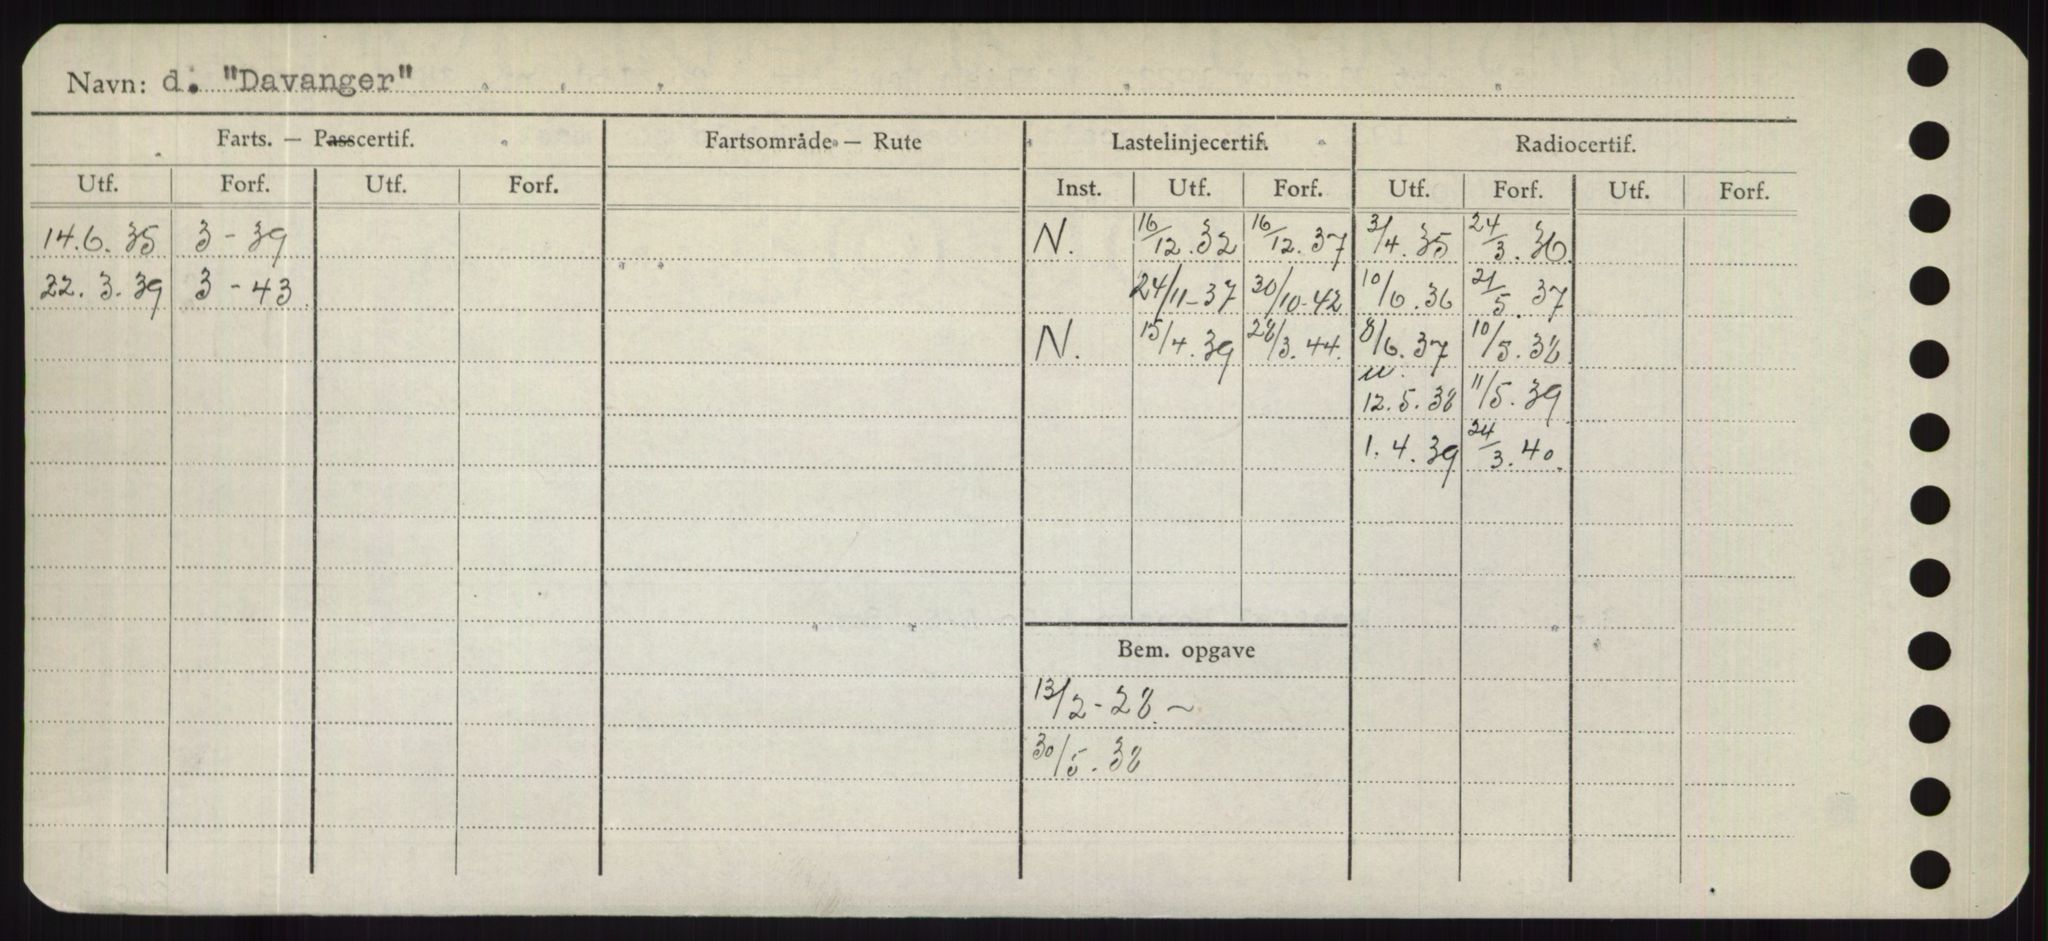 Navn: d. "Davanger"
Farts. — Passcertif. Fartsområde — Rute Lastelinjecertif. Radiocertif.
Utf. Forf. Utf. Forf. Inst. Utf. Forf. Utf. Forf. Utf. Forf.
14.6.35 3-39 N. 16/12.32 16/12.37 3/4.35 24/3.36
22.3.39 3-43 24/11-37 30/10-42 10/6.36 21/5.37
N. 15/4.39 28/3.44. 8/6.37 10/5.38
12.5.38 11/5.39
1.4.39 24/3.40.
Bem. opgave
13/2-28 ~
30/5.38